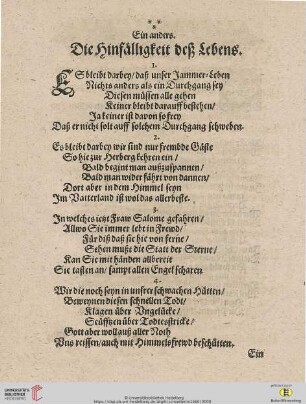 * *
*
Ein anders.
Die Hinfälligkeit deß Lebens.
1.
ES bleibt darbey / daß unser Jammer-Leben
Nichts anders als ein Durchgang sey
Diesen müssen alle gehen
Keiner bleibt darauff bestehen /
Ja keiner ist davon so frey
Daß er nicht solt auff solchem Durchgang schweben.
2.
Es bleibt darbey wir sind nur frembde Gäste
So hie zur Herberg kehren ein /
Bald begint man außzuspannen /
Bald man wider fährt von dannen /
Dort aber in dem Himmel seyn
Im Vatterland ist wol das allerbeste.
3.
In welches ietzt Fraw Salome gefahren /
Allwo Sie immer lebt in Frewd /
Für diß daß sie hie von ferne /
Sehen mußt die Statt der Sterne /
Kan Sie mit händen allbereit
Sie tasten an / sampt allen Engel scharen
4.
Wir die noch seyn in unsrer schwachen Hütten /
Beweynen diesen schnellen Todt /
Klagen über Ungelücke /
Seufftzen über Todtesstricke /
Gott aber woll auß aller Noth
Uns reissen / auch mit Himmelsfrewd beschütten.
Ein
UNIVERSITÄTS-
BIBLIOTHEK
HEIDELBERG
© Universitätsbibliothek Heidelberg
gefördert durch